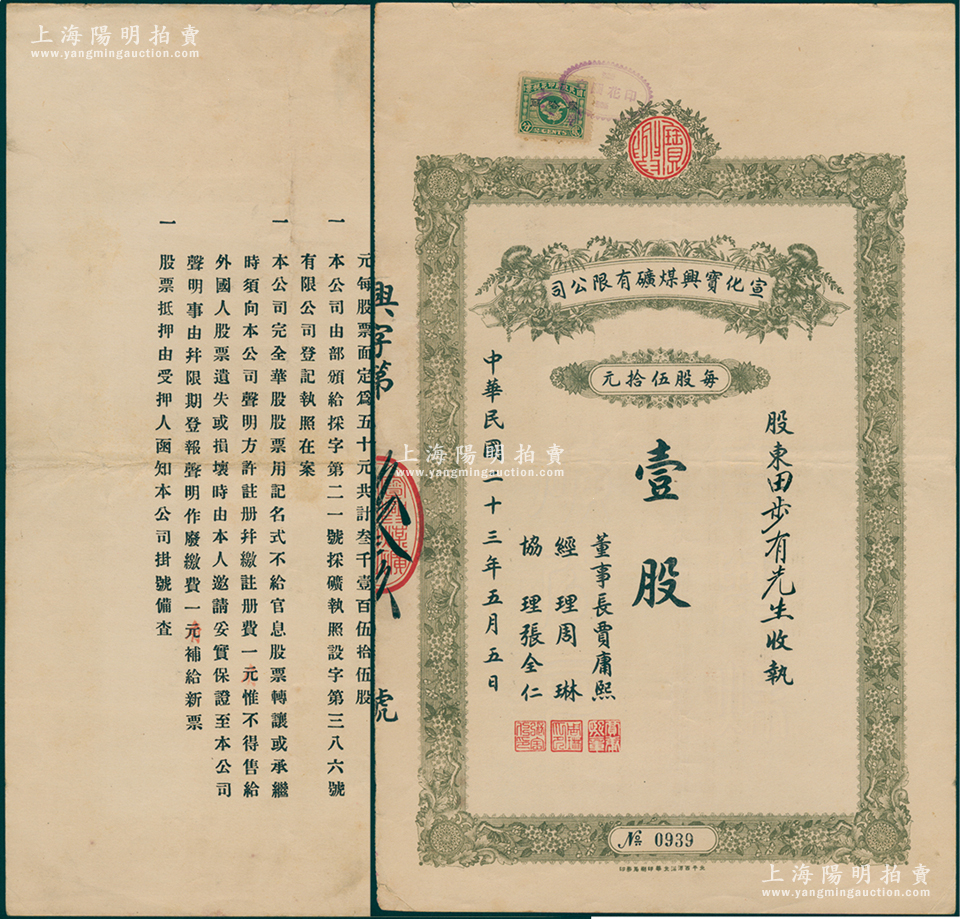 上海陽明拍賣
www.yangmingauction.com
上海陽明拍賣
www.yangmingauction.com
宣化寶興煤礦有限公司
每股伍拾元
股東田步有先生收執
壹股
董事長賈庸熙
經理周琳
協理張全仁
中華民國二十三年五月五日
№ 0939
興字第
號
元每股票面定爲五十元共計叁千壹百伍拾伍股
一本公司由部頒給採字第二一號採礦執照設字第三八六號
有限公司登記執照在案
一本公司完全華股股票用記名式不給官息股票轉讓或承繼
時須向本公司聲明方許註册幷繳註册費一元惟不得售給
外國人股票遺失或損壞時由本人邀請妥實保證至本公司
聲明事由幷限期登報聲明作廢繳費一元補給新票
一股票抵押由受押人函知本公司掛號備查
上海陽明拍賣
www.yangmingauction.com
上海陽明拍賣
www.yangmingauction.com